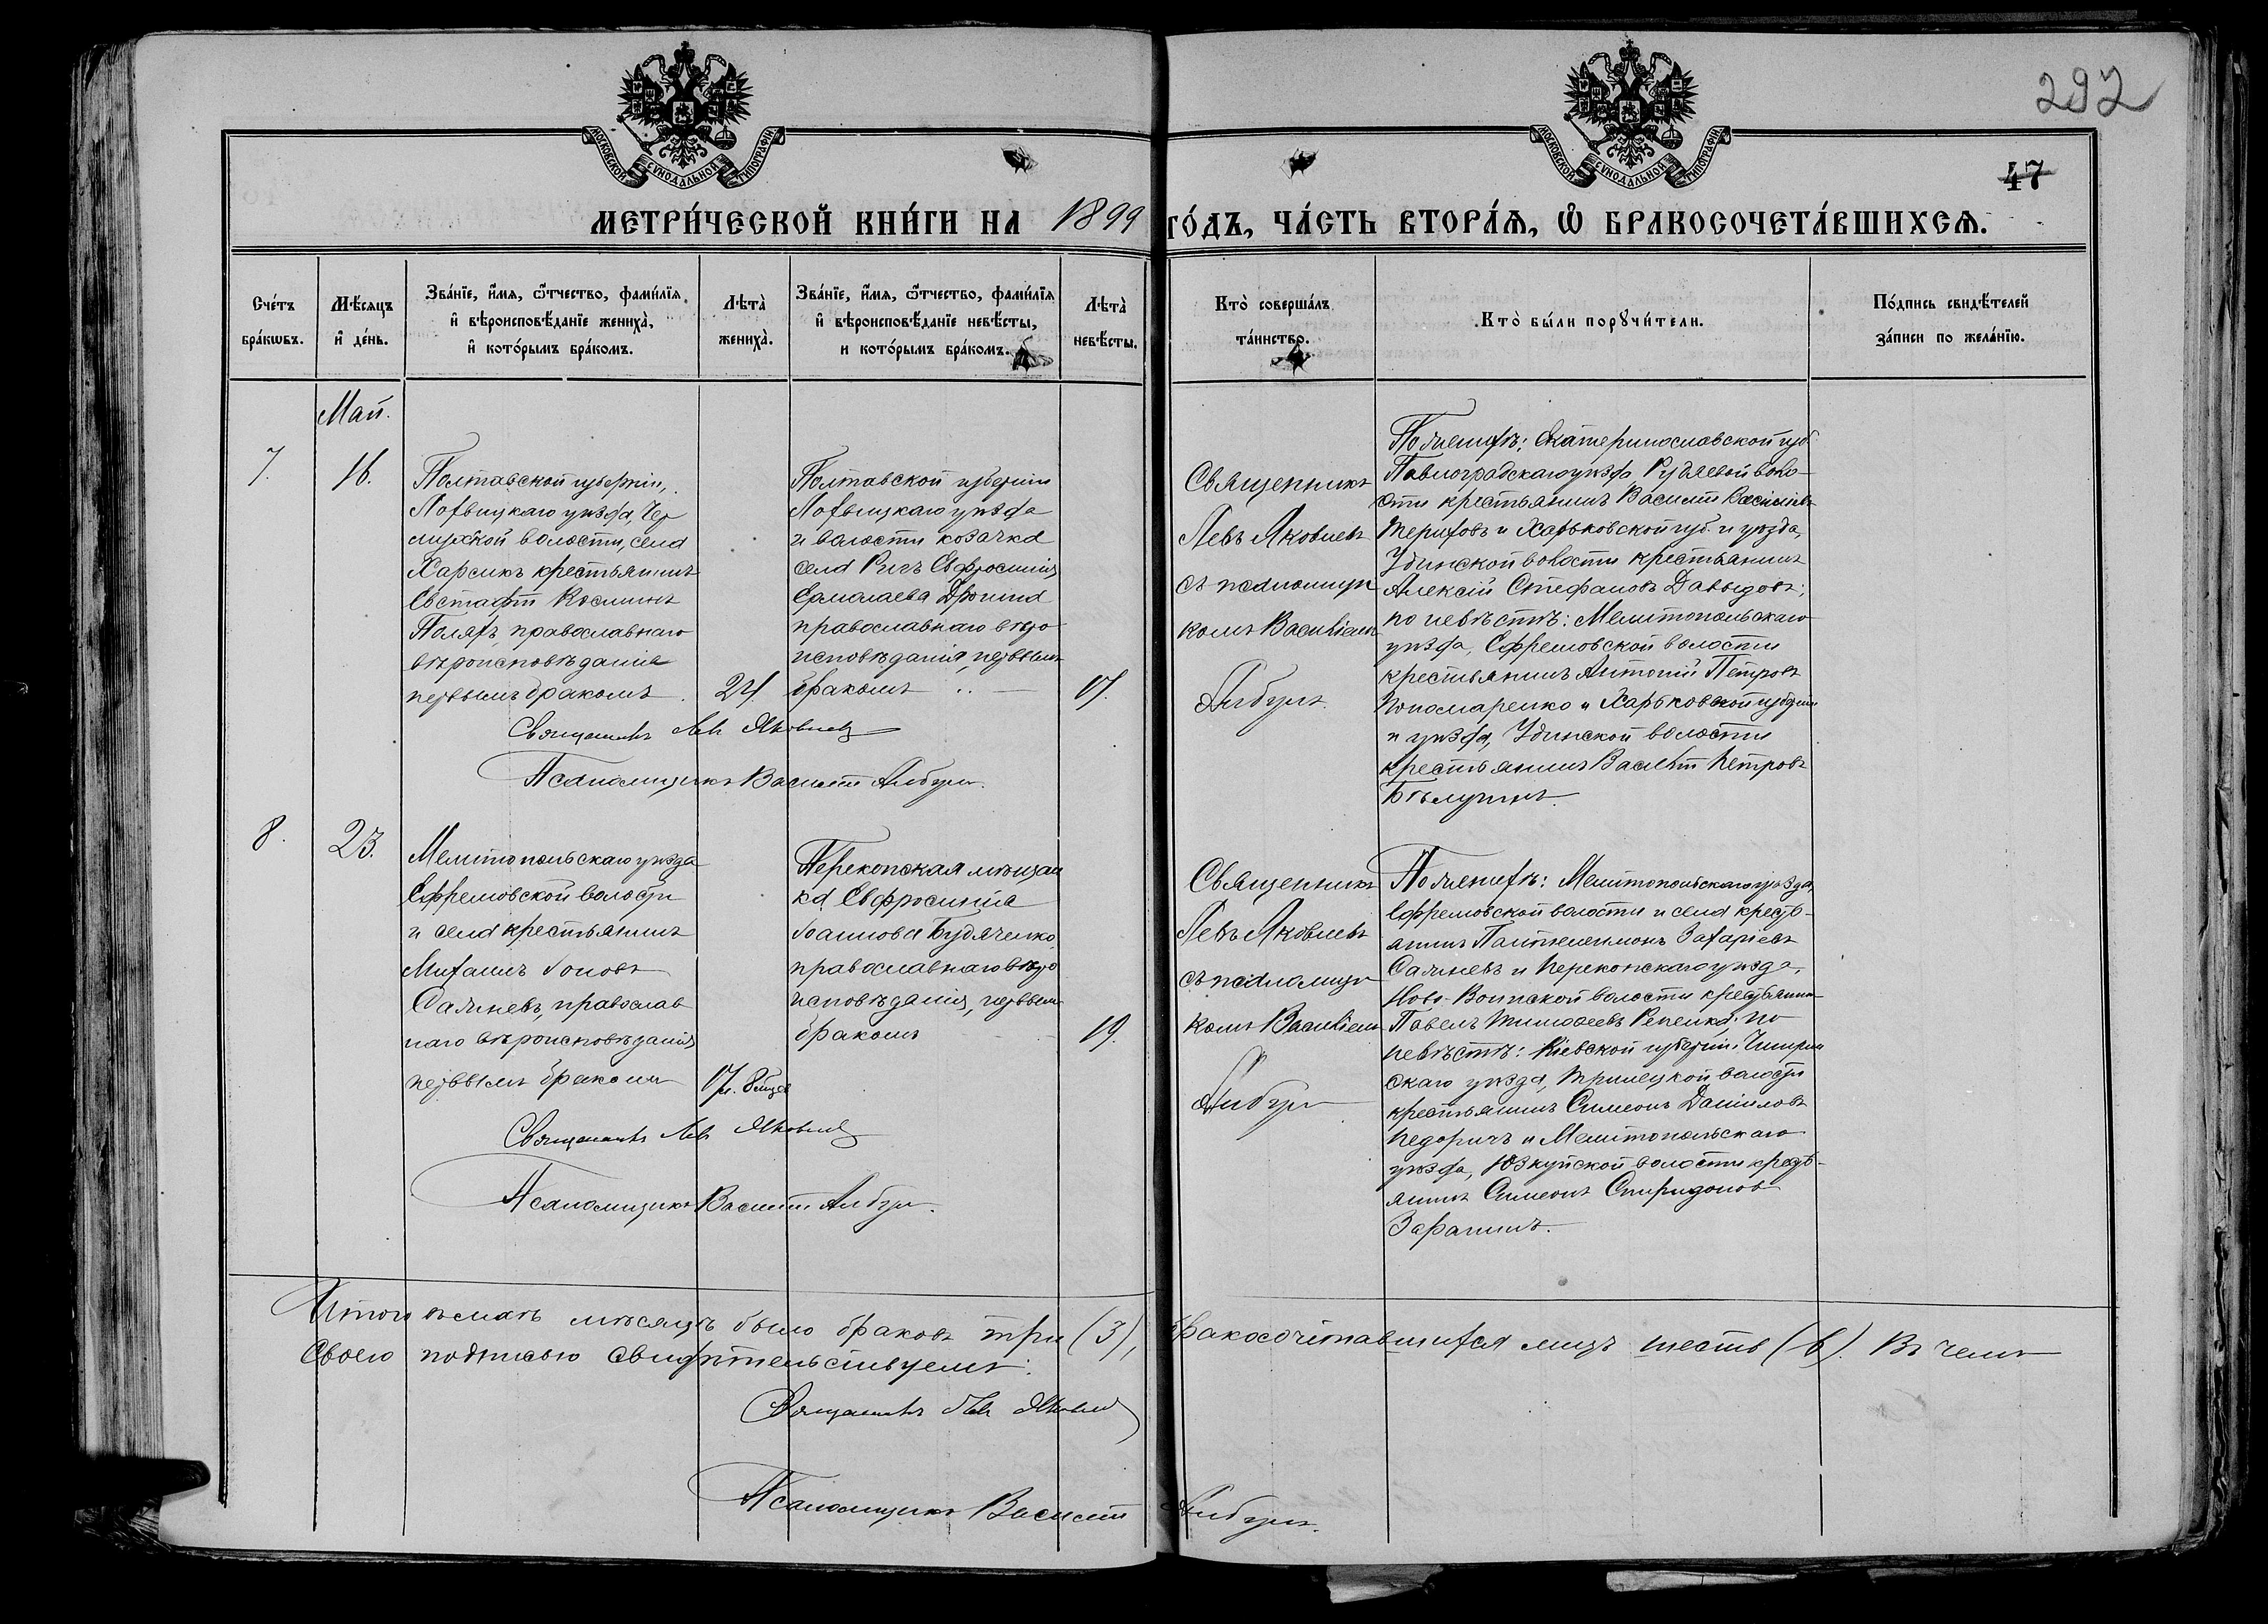 292
47
МОСКОВСКОЙ СѴНОДАЛЬНОЙ ТИПОГРАФІИ
МОСКОВСКОЙ СѴНОДАЛЬНОЙ ТИПОГРАФІИ
МЕТРИ́ЧЕСКОЙ КНИ́ГИ НА 1899 ГО́ДЪ, ЧА́СТЬ ВТОРА́Ѧ, Ѽ БРАКОСОЧЕТА́ВШИХСѦ.
Сче́тъ
бра́кѡвъ.
Мѣ́сяцъ
и҆ де́нь.
Зва́нїе, и҆́мя, ѻ҆́тчество, фами́лїя
и҆ вѣроисповѣ́данїе жениха̀,
и҆ кото́рымъ бра́комъ.
Лѣта̀
жениха̀.
Зва́нїе, и҆́мя, ѻ҆́тчество, фами́лїя
и҆ вѣроисповѣ́данїе невѣ́сты,
и кото́рымъ бра́комъ.
Лѣта̀
невѣ́сты.
Кто̀ соверша́лъ
та́инство.
Кто̀ бы́ли порꙋчи́тели.
По́дпись свидѣ́телей
за́писи по жела́нїю.
Май.
7.
16.
Полтавской губерніи,
Лохвицкаго уѣзда, Чер
нухской волости, села
Харсикъ крестьянинъ
Евстафій Косминъ
Поляхъ, православнаго
вѣроисповѣданія
первымъ бракомъ.
24.
Полтавской губерніи
Лохвицкаго уѣзда
и волости козачка
села Ригъ Евфросинія
Ермолаева
православнаго вѣро
исповѣданія, первымъ
бракомъ
17.
Священникъ Левъ Яковлевъ
Псаломщикъ Василій Анбуръ.
Священникъ
Левъ Яковлевъ
съ псаломщи
комъ Василіемъ
Анбуръ.
По женихѣ: Екатеринославской губ.
Павлоградскаго уѣзда, воло-
сти крестьянинъ Василій Васильевъ
Териховъ и Харьковской губ. и уѣзда,
Удинской волости крестьянинъ
Алексій Стефановъ Давыдовъ;
по невѣстѣ: Мелитопольскаго
уѣзда, Ефремовской волости
крестьянинъ Антоній Петровъ
Пономаренко и Харьковской губерніи
и уѣзда, Удинской волости
крестьянинъ Василій Петровъ
8.
23.
Мелитопольскаго уѣзда
Ефремовской волости
и села крестьянинъ
Михаилъ Іоновъ
Салиневъ, православ
наго вѣроисповѣданія,
первымъ бракомъ
17 л. 8 мѣс.
Перекопская мѣщан
ка Евфросинія
Іоаннова Будяченко,
православнаго вѣро
исповѣданія, первымъ
бракомъ
19.
Священникъ Левъ Яковлевъ
Псаломщикъ Василій Анбуръ.
Священникъ
Левъ Яковлевъ
съ псаломщи
комъ Василіемъ
Анбуръ
По женихѣ: Мелитопольскаго уѣзда,
Ефремовской волости и села кресть-
янинъ Пантелеимонъ Захаріевъ
Салиневъ и Перекопскаго уѣзда,
Ново-Воинской волости крестьянинъ
Павелъ Тимоѳеевъ Репенка; по
невѣстѣ: Кіевской губерніи Чигрин
скаго уѣзда, волости
крестьянинъ Симеонъ Даніиловъ
и Мелитопольскаго
уѣзда, Юзкуйской волости кресть-
янинъ Симеонъ Спиридоновъ
Итого въ маѣ мѣсяцѣ было браковъ три (3), бракосочетавшихся лицъ шесть (6). Въ чемъ
своею подписью свидѣтельствуемъ:
Священникъ Левъ Яковлевъ
Псаломщикъ Василій Анбуръ.